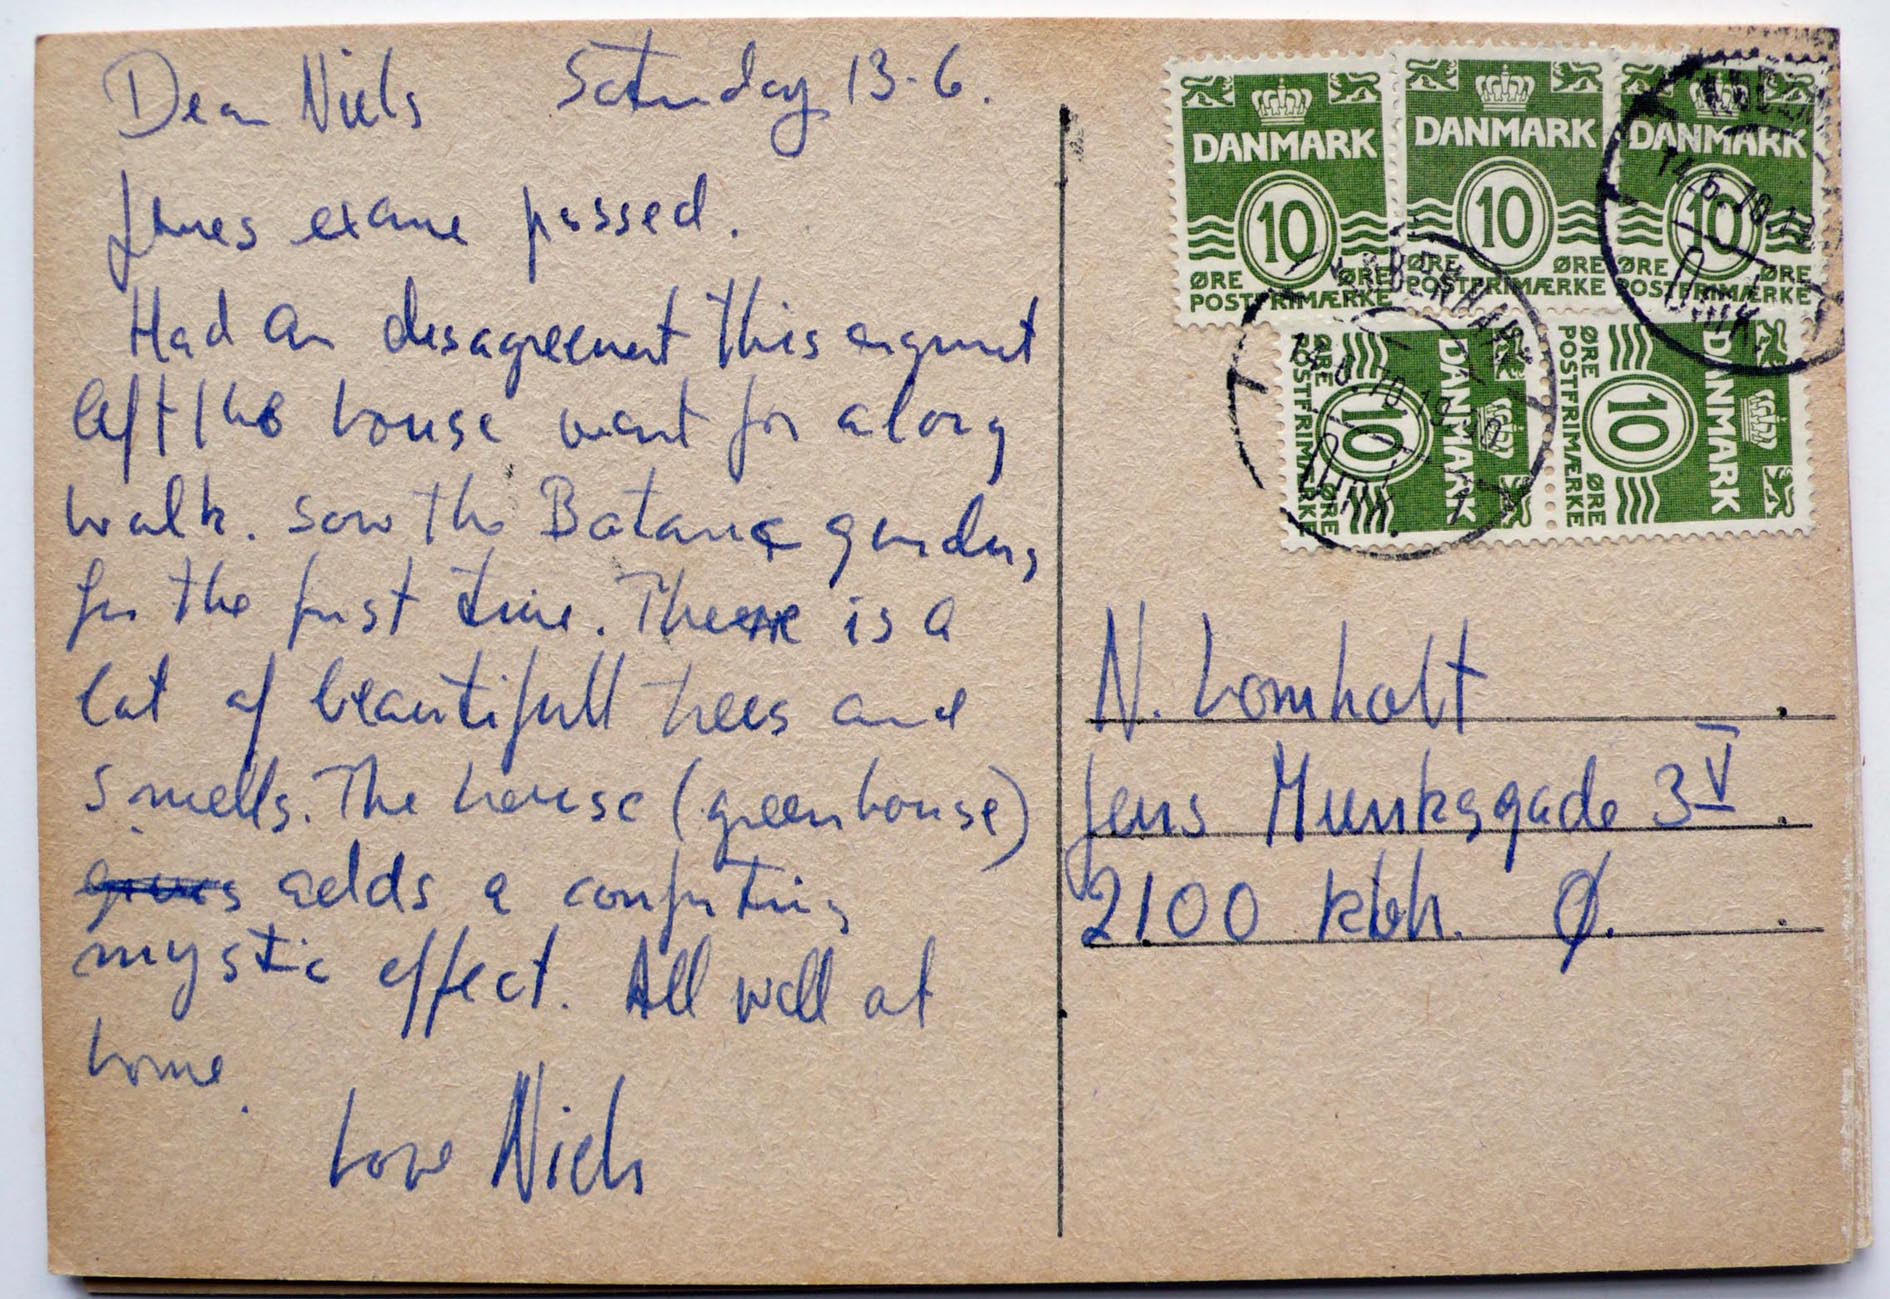 Dear Niels Saturday 13-6.
exame passed.
Had an disagreement this
left the house went for a long
walk. saw the Botanic gardens
for the first time. There is a
lot of beautifull trees and
smells. The house (greenhouse)
adds a
mystic effect. All well at
home.
Love Niels
DANMARK DANMARK DANMARK
10 10 10
ØRE ØRE ØRE ØRE ØRE ØRE
POSTFRIMÆRKE POSTFRIMÆRKE POSTFRIMÆRKE
KØBENHAVN
14.6.70.19
OMK.
DANMARK DANMARK
10 10
ØRE ØRE ØRE ØRE
POSTFRIMÆRKE POSTFRIMÆRKE
N. Lomholt
Jens Munksgade 3 V
2100 Kbh. Ø.